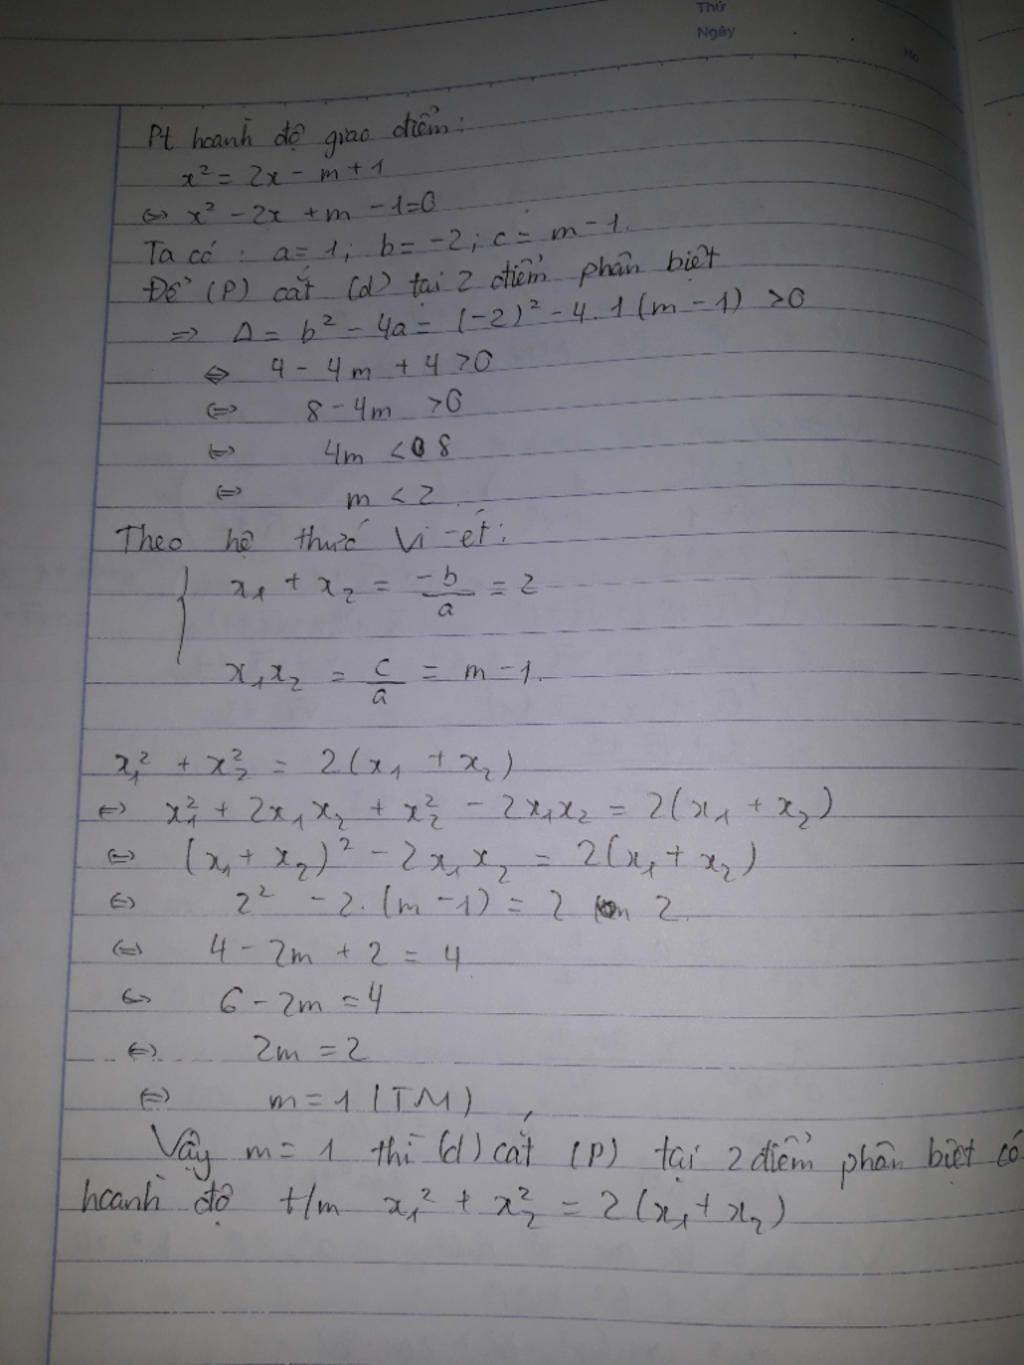 Thứ
Ngày
No
Pt hoành độ giao điểm:
x² = 2x - m + 1
⇔ x² - 2x + m - 1 = 0
Ta có : a = 1; b = -2; c = m - 1.
Để (P) cắt (d) tại 2 điểm phân biệt
=> Δ = b² - 4a = (-2)² - 4.1(m - 1) > 0
⇔ 4 - 4m + 4 > 0
⇔ 8 - 4m > 0
⇔ 4m < 8
⇔ m < 2
Theo hệ thức Vi-ét:
{ x₁ + x₂ = -b/a = 2
x₁x₂ = c/a = m - 1.
x₁² + x₂² = 2(x₁ + x₂)
⇔ x₁² + 2x₁x₂ + x₂² - 2x₁x₂ = 2(x₁ + x₂)
⇔ (x₁ + x₂)² - 2x₁x₂ = 2(x₁ + x₂)
⇔ 2² - 2.(m - 1) = 2 2.
⇔ 4 - 2m + 2 = 4
⇔ 6 - 2m = 4
⇔ 2m = 2
⇔ m = 1 (TM)
Vậy m = 1 thì (d) cắt (P) tại 2 điểm phân biệt có
hoành độ t/m x₁² + x₂² = 2(x₁ + x₂)